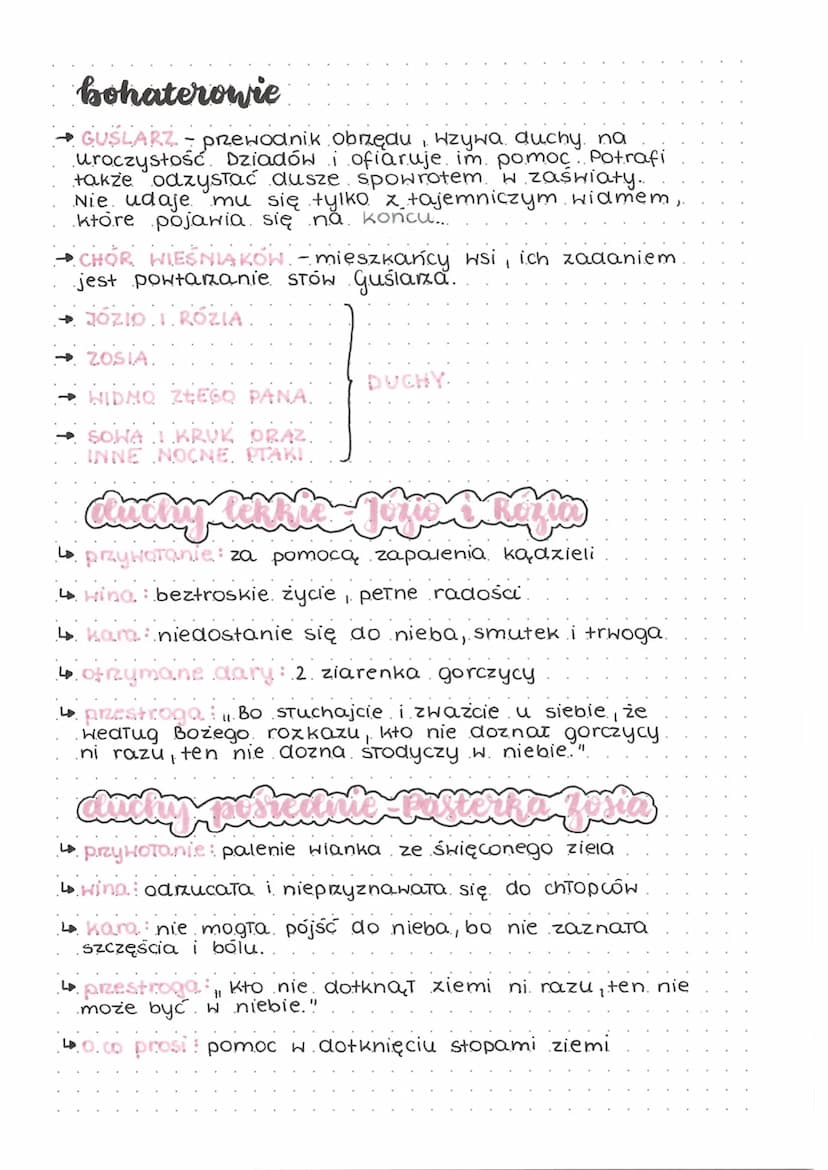 bohaterowie
→ GUŚLARZ - przewodnik obrzędu, wzywa duchy na
uroczystość Dziadów i ofiaruje im pomoc. Potrafi
także odzysłać dusze spowrotem w zaświaty.
Nie udaje mu się tylko z tajemniczym widmem,
które pojawia się na końcu...
→ CHÓR WIEŚNIAKÓW - mieszkańcy wsi, ich zadaniem
jest powtarzanie słów Guślarza.
→ JÓZIO I RÓZIA
→ ZOSIA
→ WIDMO ZŁEGO PANA
DUCHY
→ SOWA I KRUK ORAZ
INNE NOCNE PTAKI
duchy lekkie - Józio i Rózia
↳ przywołanie: za pomocą zapalenia kądzieli
↳ wina: beztroskie życie, pełne radości
↳ kara: niedostanie się do nieba, smutek i trwoga
↳ otrzymane dary: 2 ziarenka gorczycy
↳ przestroga: „Bo słuchajcie i zważcie u siebie, że
według Bożego rozkazu, kto nie doznał gorczycy
ni razu, ten nie dozna słodyczy w niebie."
duchy pośrednie - Pasterka Zosia
↳ przywołanie: palenie wianka ze święconego ziela
↳ wina: odrzucała i nieprzyznawała się do chłopców
↳ kara: nie mogła pójść do nieba, bo nie zaznała
szczęścia i bólu.
↳ przestroga: „Kto nie dotknął ziemi ni razu, ten nie
może być w niebie."
↳ o co prosi: pomoc w dotknięciu stopami ziemi